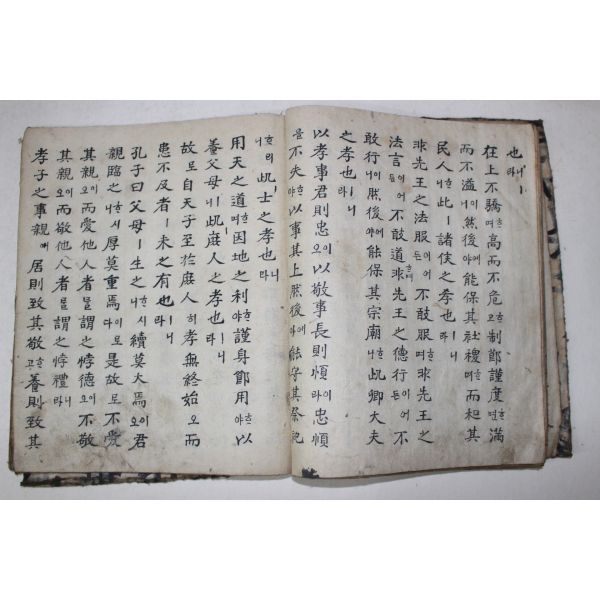 也ㅣ니라
在上不驕하며高而不危오하制節謹度하며滿
而不溢이니然後에야能保其社稷하며而和其
民人하니此ㅣ諸侯之孝也ㅣ니라
非先王之法服이어든不敢服하며非先王之
法言이어든不敢道하며非先王之德行이어든不
敢行이니然後에야能保其宗廟하니此ㅣ卿大夫
之孝也ㅣ니라
以孝事君則忠이오以敬事長則順이라忠順
을不失하야以事其上然後에야能守其祭祀
하리니此ㅣ士之孝也ㅣ니라
用天之道하며因地之利하야謹身節用하야以
養父母ㅣ니此ㅣ庶人之孝也ㅣ니라
故로自天子至於庶人히孝無終始오而
患不及者ㅣ未之有也ㅣ니라
孔子曰父母ㅣ生之하시니續莫大焉이오君
親臨之하시니厚莫重焉이로다是故로不愛
其親이오而愛他人者를謂之悖德이오不敬
其親이오而敬他人者를謂之悖禮니라
孝子之事親에居則致其敬하고養則致其